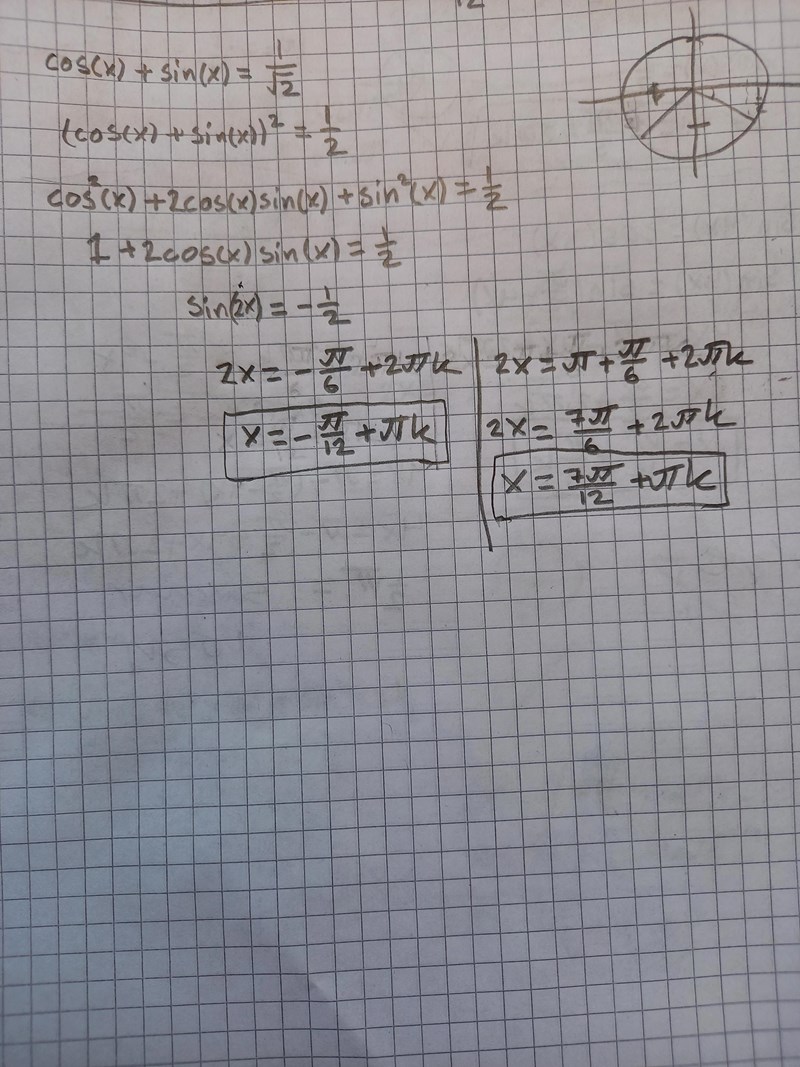 cos(x) + sin(x) = 1/√2
(cos(x) + sin(x))² = 1/2
cos²(x) + 2cos(x)sin(x) + sin²(x) = 1/2
1 + 2cos(x) sin(x) = 1/2
sin(2x) = - 1/2
2x = - π/6 + 2πk
x = - π/12 + πk
2x = π + π/6 + 2πk
2x = 7π/6 + 2πk
x = 7π/12 + πk